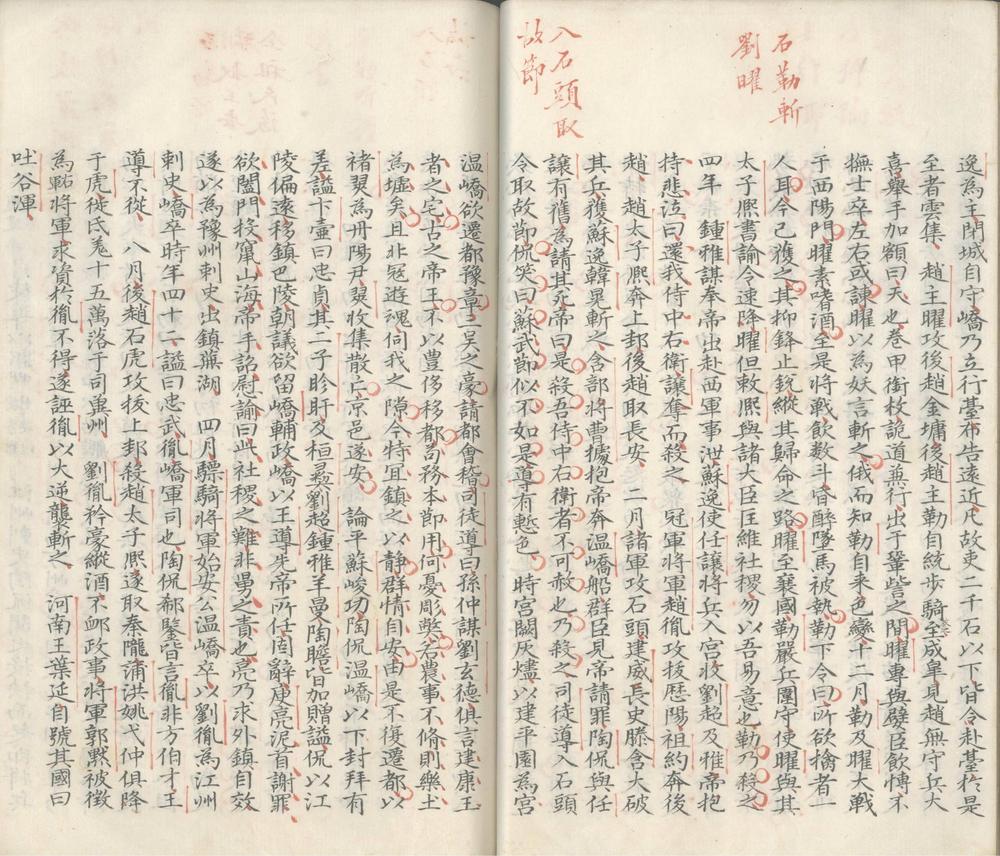 石勒斬
劉曜
入石頭取
故節
逸為主閉城自守嶠乃立行臺布告遠近凡故吏二千石以下皆令赴臺於是
至者雲集 趙主曜攻後趙金墉後趙主勒自統步騎至成皐見趙無守兵大
喜舉手加額曰天也卷甲銜枚詭道兼行出于鞏訾之間曜專與嬖臣飲愽不
撫士卒左右或諫曜以為妖言斬之俄而知勒自来色變十二月勒及曜大戰
于西陽門曜素嗜酒至是將戰飲数斗昏醉墜馬被執勒下令曰所欲擒者一
人耳今已獲之其抑鋒止銳縱其歸命之路曜至襄國勒嚴兵圍守使曜與其
太子熈書諭令速降曜但敕熈與諸大臣匡維社稷勿以吾易意也勒乃殺之
四年 鍾雅謀奉帝出赴西軍事泄蘇逸使任讓將兵入宮收劉超及雅帝抱
持悲泣曰還我侍中右衛讓奪而殺之 冠軍將軍趙胤攻拔歷陽祖約奔後
趙 趙太子熈奔上邽後趙取長安 二月諸軍攻石頭建威長史滕含大破
其兵獲蘇逸韓晃斬之含部將曹據抱帝奔溫嶠船群臣見帝請罪陶侃與任
讓有舊為請其死帝曰是殺吾侍中右衛者不可赦也乃殺之司徒導入石頭
令取故節侃笑曰蘇武節似不如是導有慙色 時宮闕灰燼以建平園為宮
溫嶠欲遷都豫章三吳之豪請都會稽司徒導曰孫仲謀劉玄德俱言建康王
者之宅古之帝王不以豊侈移都苟務本節用何憂彫弊若農事不脩則樂土
為墟矣且北冦遊魂伺我之隙今特宜鎮之以静群情自安由是不復遷都以
褚翜為丹陽尹翜收集散亡京邑遂安 論平蘇峻功陶侃溫嶠以下封拜有
差謚卞壼曰忠貞其二子眕盱及桓彝劉超鍾雅羊曼陶瞻皆加贈謚侃以江
陵偏遠移鎮巴陵朝議欲留嶠輔政嶠以王導先帝所任固辭庾亮泥首謝罪
欲闔門投竄山海帝手詔慰諭曰此社稷之難非舅之責也亮乃求外鎮自效
遂以為豫州剌史出鎮蕪湖 四月驃騎將軍始安公溫嶠卒以劉胤為江州
剌史嶠卒時年四十二謚曰忠武胤嶠軍司也陶侃郗鑒皆言胤非方伯才王
導不從 八月後趙石虎攻拔上邽殺趙太子熈遂取秦隴蒲洪姚弋仲俱降
于虎徙氐羗十五萬落于司兾州 劉胤矜豪縱酒不邮政事將軍郭黙被徵
為右軍將軍求資於胤不得遂誣胤以大逆襲斬之 河南王葉延自號其國曰
吐谷渾